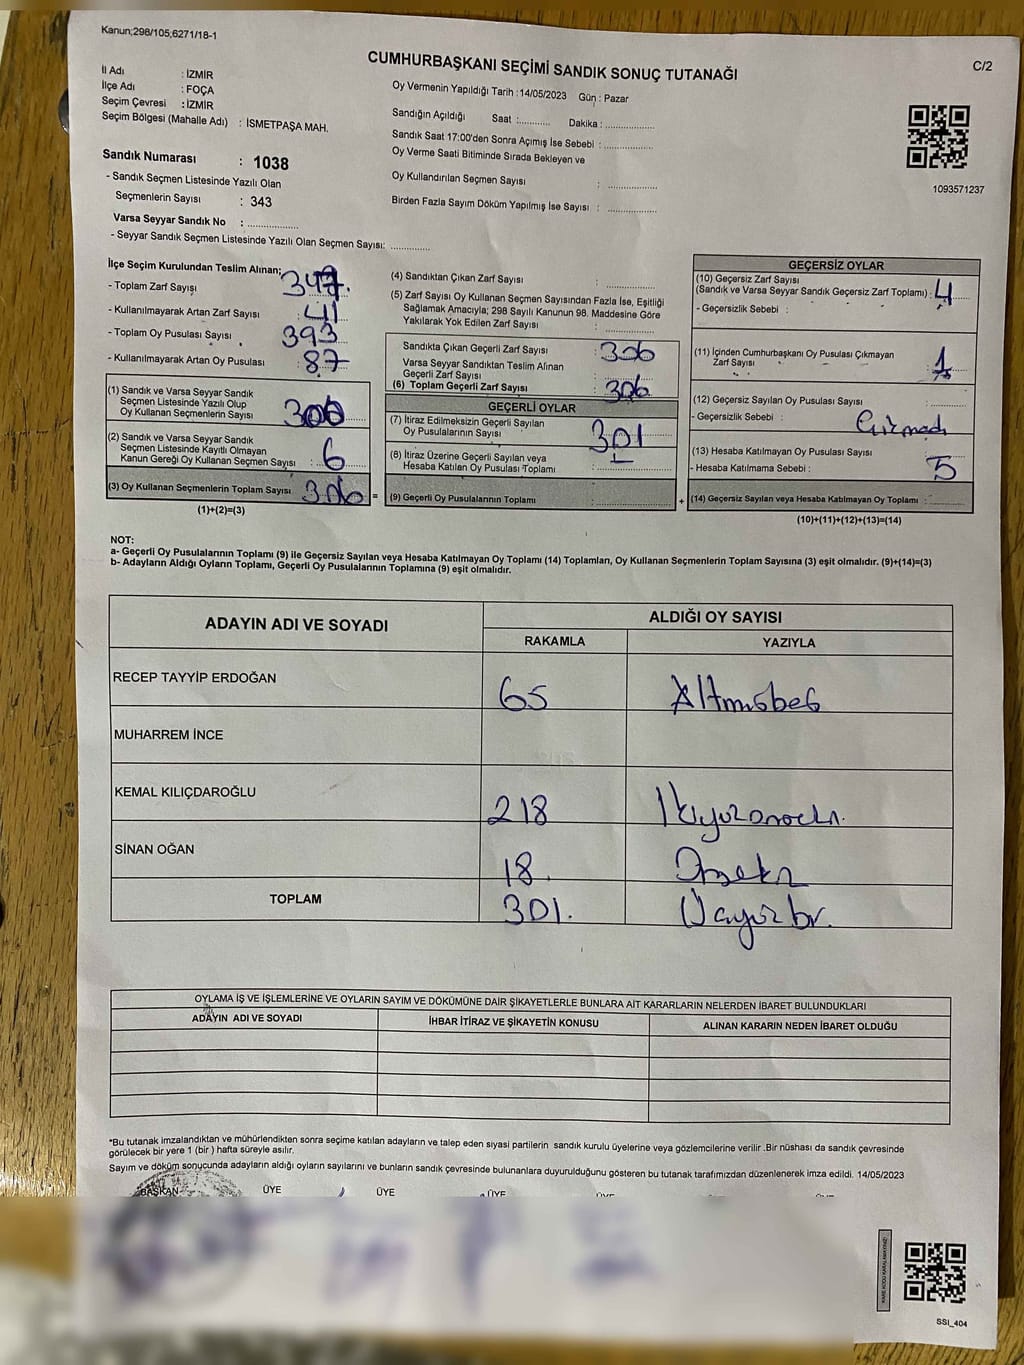 Kanun;298/105,6271/18-1
C/2
CUMHURBAŞKANI SEÇİMİ SANDIK SONUÇ TUTANAĞI
İl Adı : İZMİR
İlçe Adı : FOÇA
Seçim Çevresi : İZMİR
Seçim Bölgesi (Mahalle Adı) : İSMETPAŞA MAH.
Sandık Numarası : 1038
- Sandık Seçmen Listesinde Yazılı Olan
Seçmenlerin Sayısı : 343
Varsa Seyyar Sandık No : ................
- Seyyar Sandık Seçmen Listesinde Yazılı Olan Seçmen Sayısı: ............
Oy Vermenin Yapıldığı Tarih : 14/05/2023 Gün : Pazar
Sandığın Açıldığı Saat :........... Dakika : ................
Sandık Saat 17:00'den Sonra Açımış İse Sebebi : ................
Oy Verme Saati Bitiminde Sırada Bekleyen ve
Oy Kullandırılan Seçmen Sayısı : ................
Birden Fazla Sayım Döküm Yapılmış İse Sayısı : ................
1093571237
İlçe Seçim Kurulundan Teslim Alınan;
- Toplam Zarf Sayışı 347.
- Kullanılmayarak Artan Zarf Sayısı : 41
- Toplam Oy Pusulası Sayısı : 393
- Kullanılmayarak Artan Oy Pusulası : 87
(1) Sandık ve Varsa Seyyar Sandık
Seçmen Listesinde Yazılı Olup
Oy Kullanan Seçmenlerin Sayısı 300
(2) Sandık ve Varsa Seyyar Sandık
Seçmen Listesinde Kayıtlı Olmayan
Kanun Gereği Oy Kullanan Seçmen Sayısı : 6
(3) Oy Kullanan Seçmenlerin Toplam Sayısı 306 =
(1)+(2)=(3)
(4) Sandıktan Çıkan Zarf Sayısı : ................
(5) Zarf Sayısı Oy Kullanan Seçmen Sayısından Fazla İse, Eşitliği
Sağlamak Amacıyla; 298 Sayılı Kanunun 98. Maddesine Göre
Yakılarak Yok Edilen Zarf Sayısı : ................
Sandıkta Çıkan Geçerli Zarf Sayısı : 306
Varsa Seyyar Sandıktan Teslim Alınan
Geçerli Zarf Sayısı :
(6) Toplam Geçerli Zarf Sayısı : 306
GEÇERLİ OYLAR
(7) İtiraz Edilmeksizin Geçerli Sayılan
Oy Pusulalarının Sayısı 301
(8) İtiraz Üzerine Geçerli Sayılan veya
Hesaba Katılan Oy Pusulası Toplamı : ................
(9) Geçerli Oy Pusulalarının Toplamı : ................ +
GEÇERSİZ OYLAR
(10) Geçersiz Zarf Sayısı
(Sandık ve Varsa Seyyar Sandık Geçersiz Zarf Toplamı) : 4
- Geçersizlik Sebebi :
(11) İçinden Cumhurbaşkanı Oy Pusulası Çıkmayan
Zarf Sayısı : 1
(12) Geçersiz Sayılan Oy Pusulası Sayısı : ............
- Geçersizlik Sebebi :
(13) Hesaba Katılmayan Oy Pusulası Sayısı : 5
- Hesaba Katılmama Sebebi :
(14) Geçersiz Sayılan veya Hesaba Katılmayan Oy Toplamı : ............
(10)+(11)+(12)+(13)=(14)
NOT:
a- Geçerli Oy Pusulalarının Toplamı (9) ile Geçersiz Sayılan veya Hesaba Katılmayan Oy Toplamı (14) Toplamları, Oy Kullanan Seçmenlerin Toplam Sayısına (3) eşit olmalıdır. (9)+(14)=(3)
b- Adayların Aldığı Oyların Toplamı, Geçerli Oy Pusulalarının Toplamına (9) eşit olmalıdır.
ADAYIN ADI VE SOYADI
ALDIĞI OY SAYISI
RAKAMLA YAZIYLA
RECEP TAYYİP ERDOĞAN 65 Altmışbeş
MUHARREM İNCE
KEMAL KILIÇDAROĞLU 218
SİNAN OĞAN 18
TOPLAM 301. Üçyüz bir.
OYLAMA İŞ VE İŞLEMLERİNE VE OYLARIN SAYIM VE DÖKÜMÜNE DAİR ŞİKAYETLERLE BUNLARA AİT KARARLARIN NELERDEN İBARET BULUNDUKLARI
ADAYIN ADI VE SOYADI İHBAR İTİRAZ VE ŞİKAYETİN KONUSU ALINAN KARARIN NEDEN İBARET OLDUĞU
*Bu tutanak imzalandıktan ve mühürlendikten sonra seçime katılan adayların ve talep eden siyasi partilerin sandık kurulu üyelerine veya gözlemcilerine verilir .Bir nüshası da sandık çevresinde
görülecek bir yere 1 (bir ) hafta süreyle asılır.
Sayım ve döküm sonucunda adayların aldığı oyların sayılarını ve bunların sandık çevresinde bulunanlara duyurulduğunu gösteren bu tutanak tarafımızdan düzenlenerek imza edildi. 14/05/2023
BAŞKAN ÜYE ÜYE ÜYE
SSI_404